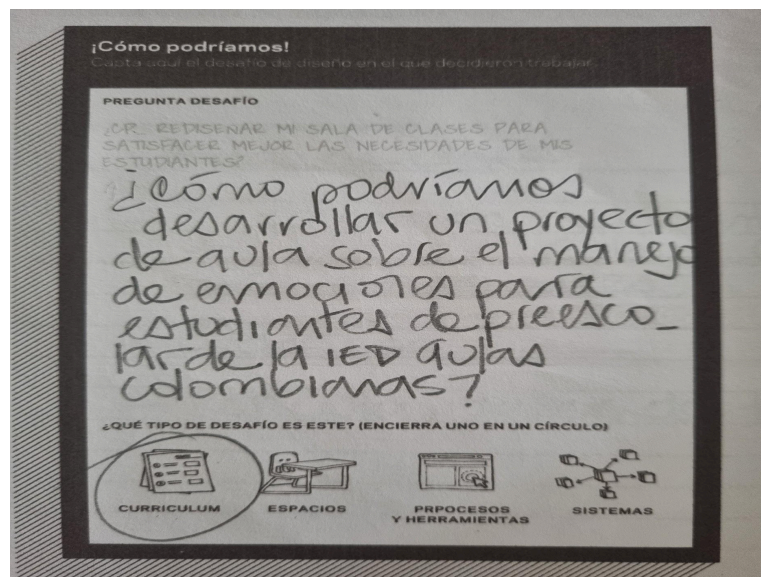 ¡Cómo podríamos!
Capta aquí el desafío de diseño en el que decidieron trabajar.
PREGUNTA DESAFÍO
¿CP REDISEÑAR MI SALA DE CLASES PARA
SATISFACER MEJOR LAS NECESIDADES DE MIS
ESTUDIANTES?
¿Cómo podríamos
desarrollar un proyecto
de aula sobre el manejo
de emociones para
estudiantes de preesco_
lar de la IED aulas
colombianas?
¿QUÉ TIPO DE DESAFÍO ES ESTE? (ENCIERRA UNO EN UN CÍRCULO)
CURRICULUM ESPACIOS PRPOCESOS SISTEMAS
Y HERRAMIENTAS